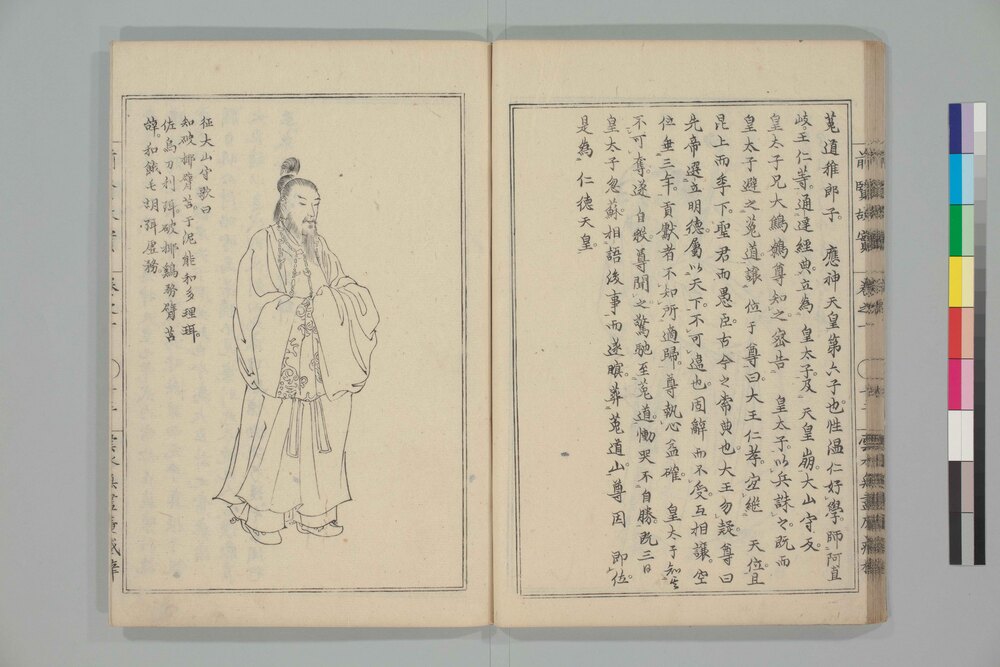 菟道稚郎子　應神天皇第六子也。性温仁好學。師阿直
岐王仁等。通達經典。立為　皇太子。及　天皇崩。大山守反。
皇太子兄大鷦鷯尊知之。密告　皇太子。以兵誅之。既而
皇太子避之菟道。讓　位于尊曰。大王仁孝。宜継　天位。且
昆上而季下。聖君而愚臣。古今之常典也。大王勿疑。尊曰
先帝選立明德。屬以天下。不可違也。固辭而不受。互相讓。空
位無三年。貢獻者不知所適歸。尊執心益確　皇太子知
不可奪。遂　自殺。尊聞之驚馳至菟道。慟哭不自勝。既三日
皇太子忽蘇。相語後事。而遂瞑。葬菟道山。尊因　即位。
是為　仁德天皇。
征大山守歌曰
知破揶臂苔。于泥能和多理珥。
佐烏刀利珥。破揶鷄務臂苔
辭。和餓毛胡珥虛務
前賢故實　卷之一